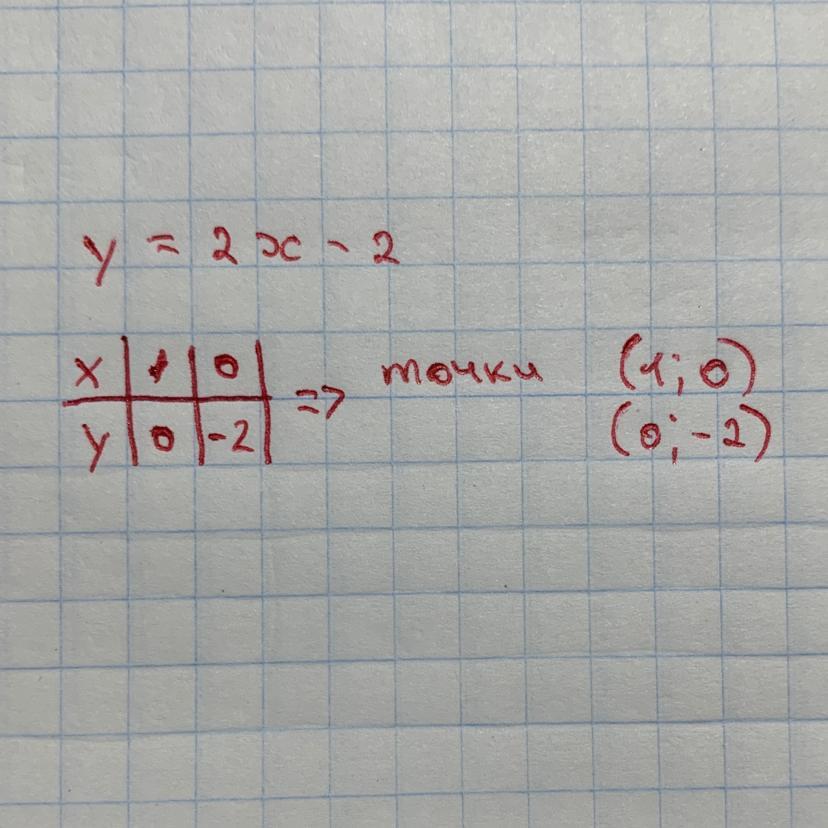 y = 2x - 2
x | 1 | 0 | => точки (1; 0)
y | 0 | -2 | (0; -2)